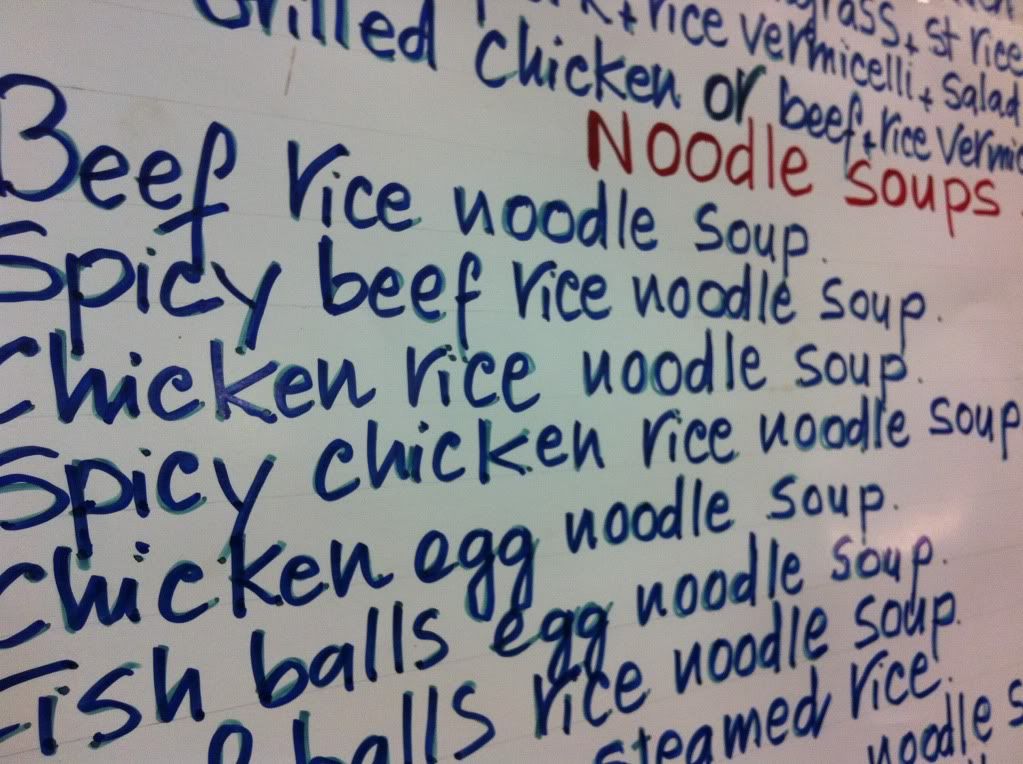 + st rice
+ rice vermicelli + Salad
Grilled Chicken or beef + rice vermic
Noodle Soups
Beef rice noodle soup.
Spicy beef rice noodle soup.
Chicken rice noodle soup.
Spicy chicken rice noodle soup
Chicken egg noodle soup.
Fish balls egg noodle soup.
balls rice noodle soup.
steamed rice.
noodle s